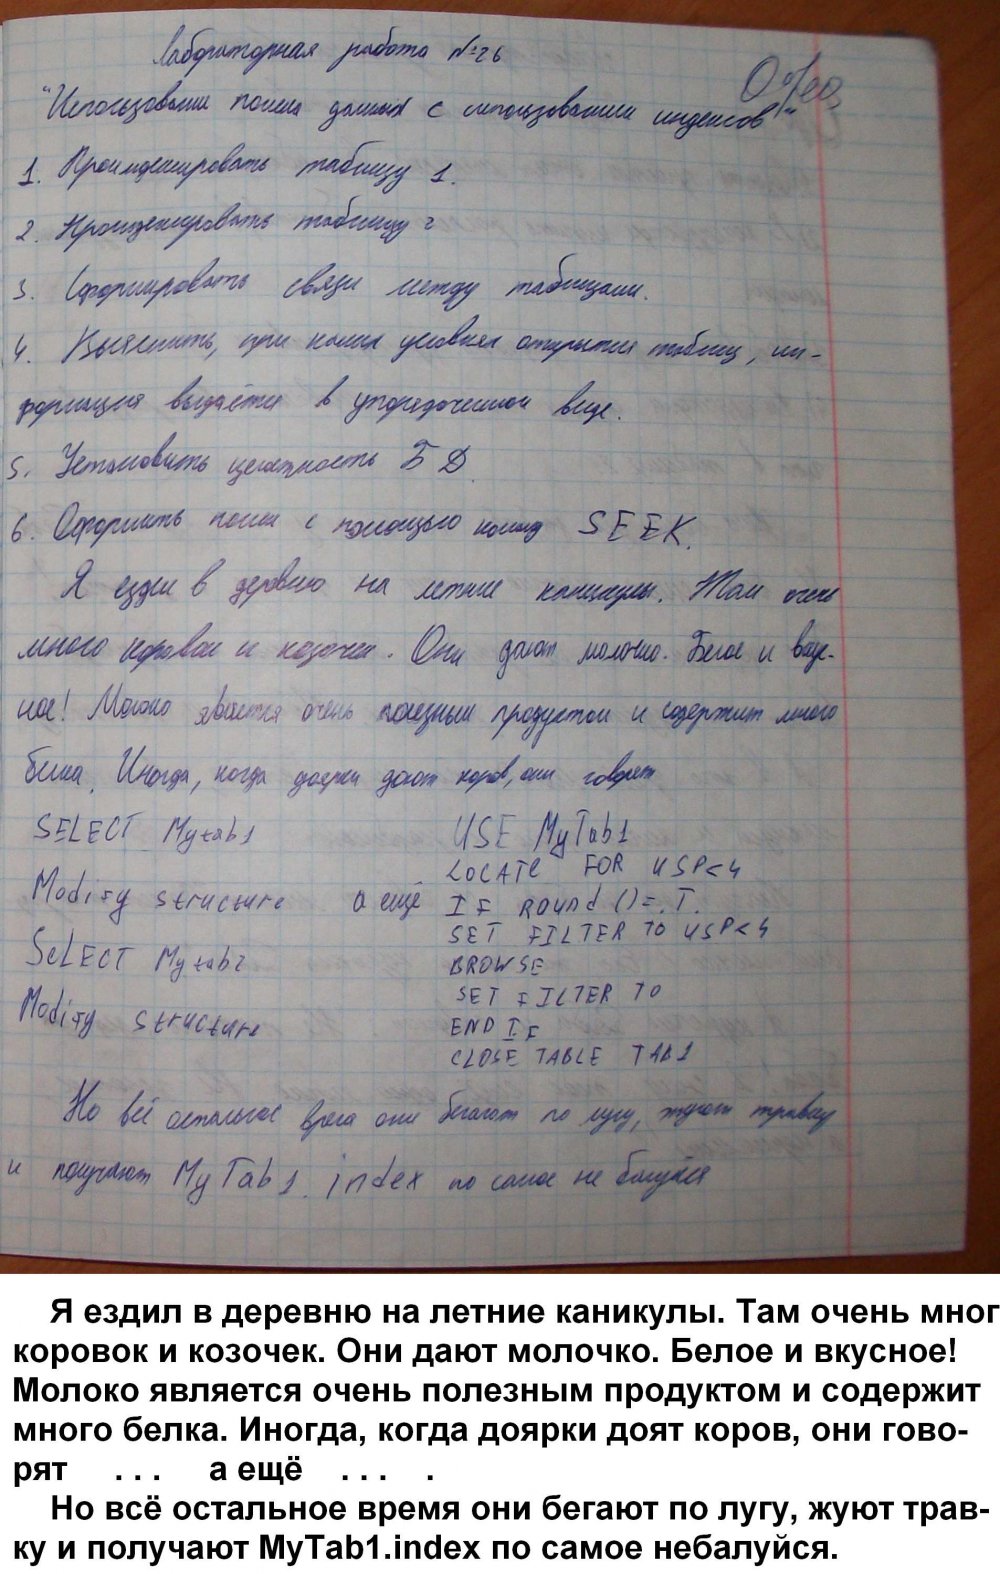 Лабораторная работа №26
"Использование поиска данных с использованием индексов"
1. Проиндексировать таблицу 1.
2. Проиндексировать таблицу 2
3. Сформировать связи между таблицами.
4. Выяснить, при каких условиях открытия таблиц, ин-
формация выдаётся в упорядоченном виде.
5. Установить целостность БД.
6. Оформить поиск с помощью команд SEEK.
Я ездил в деревню на летние каникулы. Там очень
много коровок и козочек. Они дают молочко. Белое и вкус-
ное! Молоко является очень полезным продуктом и содержит много
белка. Иногда, когда доярки доят коров, они говорят
SELECT Mytab1
Modify structure а ещё
SeLECT Mytab2
Modify structure
USE MyTab1
LOCATE FOR USP<4
IF ROUND()=.T.
SET FILTER TO USP<4
BROWSE
SET FILTER TO
END IF
CLOSE TABLE TAB1
Но всё остальное время они бегают по лугу, жуют травку
и получают MyTab1.index по самое не балуйся
Я ездил в деревню на летние каникулы. Там очень мног
коровок и козочек. Они дают молочко. Белое и вкусное!
Молоко является очень полезным продуктом и содержит
много белка. Иногда, когда доярки доят коров, они гово-
рят . . . а ещё . . . .
Но всё остальное время они бегают по лугу, жуют трав-
ку и получают MyTab1.index по самое небалуйся.